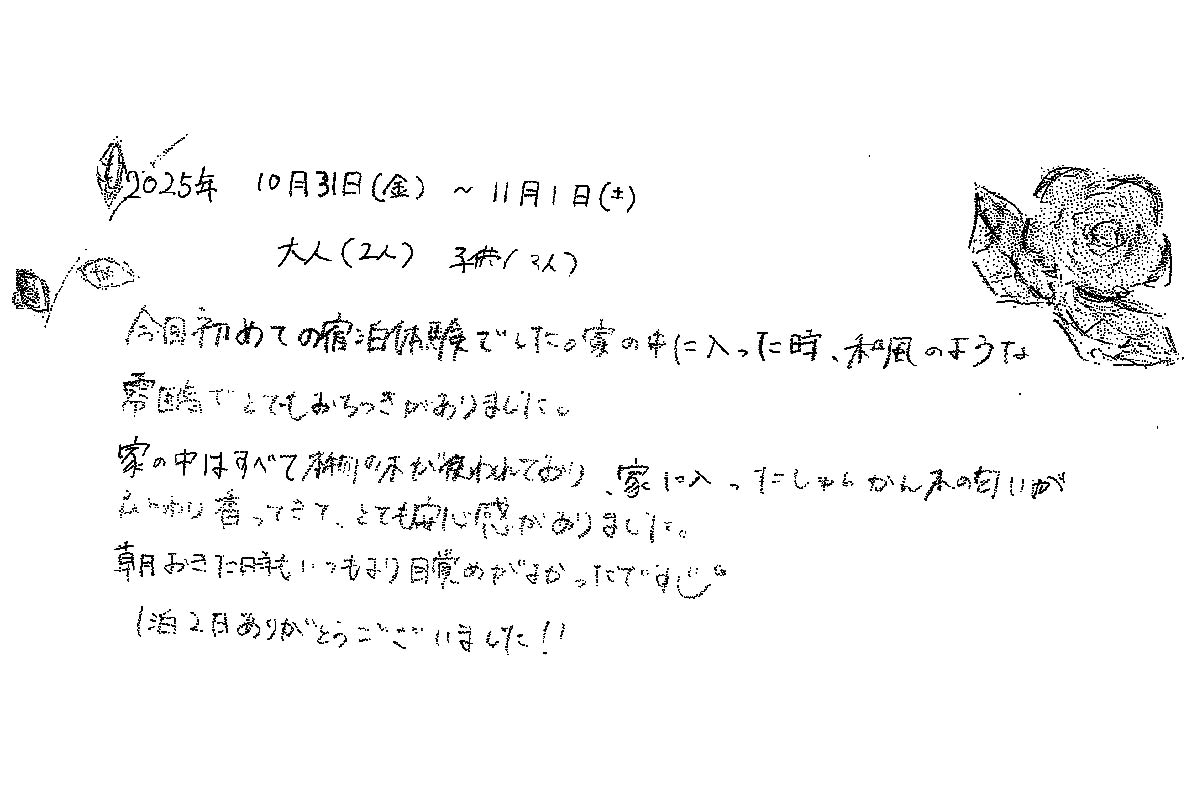 2025年 10月31日(金) ~ 11月1日(土)
大人(2人) 子供(2人)
今回初めての宿泊体験でした。家の中に入った時、和風のような
雰囲気でとてもおちつきがありました。
家の中はすべて本物の木が使われており、家に入ったしゅんかん木の匂いが
ふんわり香ってきて、とても安心感がありました。
朝おきた時もいつもより目覚めがよかったです。
1泊2日ありがとうございました!!